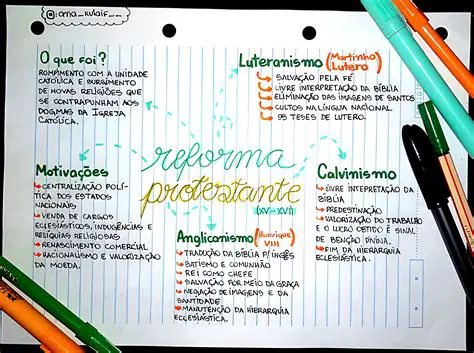 @ana_kulaif__
O que foi?
ROMPIMENTO COM A UNIDADE
CATÓLICA E SURGIMENTO
DE NOVAS RELIGIÕES QUE
SE CONTRAPUNHAM AOS
DOGMAS DA IGREJA
CATÓLICA.
Luteranismo (Martinho
Lutero)
SALVAÇÃO PELA FÉ
LIVRE INTERPRETAÇÃO DA BÍBLIA
ELIMINAÇÃO DAS IMAGENS DE SANTOS
CULTOS NA LÍNGUA NACIONAL
95 TESES DE LUTERO.
reforma
protestante
(XV - XVI)
Motivações
CENTRALIZAÇÃO POLÍ-
TICA DOS ESTADOS
NACIONAIS
VENDA DE CARGOS
ECLESIÁSTICOS, INDULGÊNCIAS E
RELÍQUIAS RELIGIOSAS
RENASCIMENTO COMERCIAL
RACIONALISMO E VALORIZAÇÃO
DA MOEDA.
Anglicanismo (Henrique
VIII)
TRADUÇÃO DA BÍBLIA P/ INGLÊS
BATISMO E COMUNHÃO
REI COMO CHEFE
SALVAÇÃO POR MEIO DA GRAÇA
NEGAÇÃO DE IMAGENS E DA
SANTIDADE
MANUTENÇÃO DA HIERARQUIA
ECLESIÁSTICA.
Calvinismo
LIVRE INTEPRETAÇÃO DA
BÍBLIA
PREDESTINAÇÃO
VALORIZAÇÃO DO TRABALHO
E O LUCRO OBTIDO É SINAL
DE BENÇÃO DIVINA.
FIM DA HIERARQUIA
ECLESIÁSTICA.